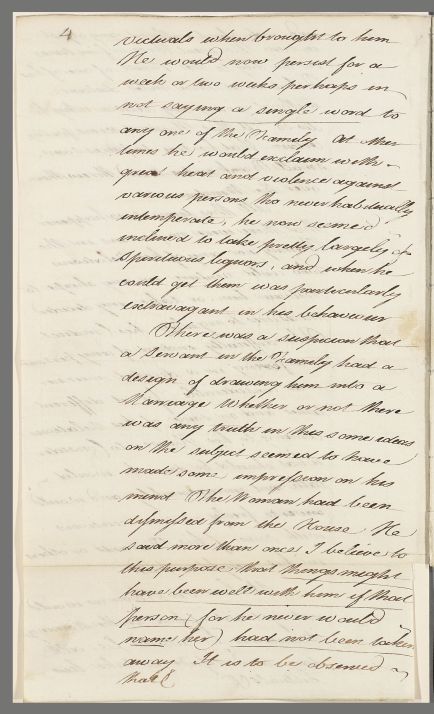 4
victuals when brought to him
He would now persist for a
week or two weeks perhaps in
not saying a single word to
any one of the Family At other
times he would exclaim with
great heat and violence against
various persons tho never habitually
intemperate, he now seemed
inclined to take pretty largely of
Spirituous liquors, and when he
could get them was particularly
extravagant in his behaviour
There was a suspicion that
a Servant in the Family had a
design of drawing him into a
Marriage Whether or not there
was any truth in this some ideas
on the subject seemed to have
made some impression on his
mind The Woman had been
dismissed from the House He
said more than once I believe to
this purpose, that things might
have been well with him if that
person (for he never would
name her) had not been taken
away It is to be observed
that